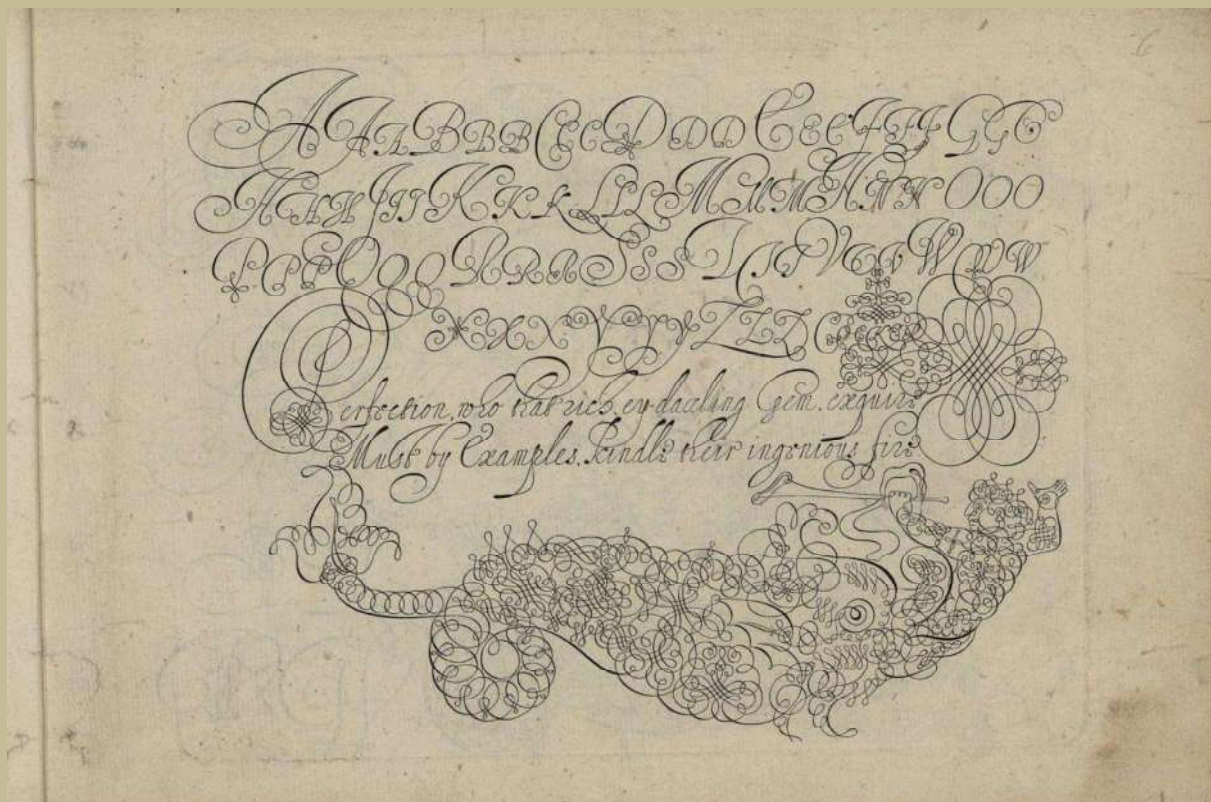 6
A A A B B B C C C D D D E E E F F F G G G
H H H I I I K K K L L L M M M N N N O O O
P P P Q Q Q R R R S S S T T T V V V W W W
X X X Y Y Y Z Z Z
Perfection, who that rich, ey-dazling Gem, exquire
Must by Examples, kindle their ingenious fire